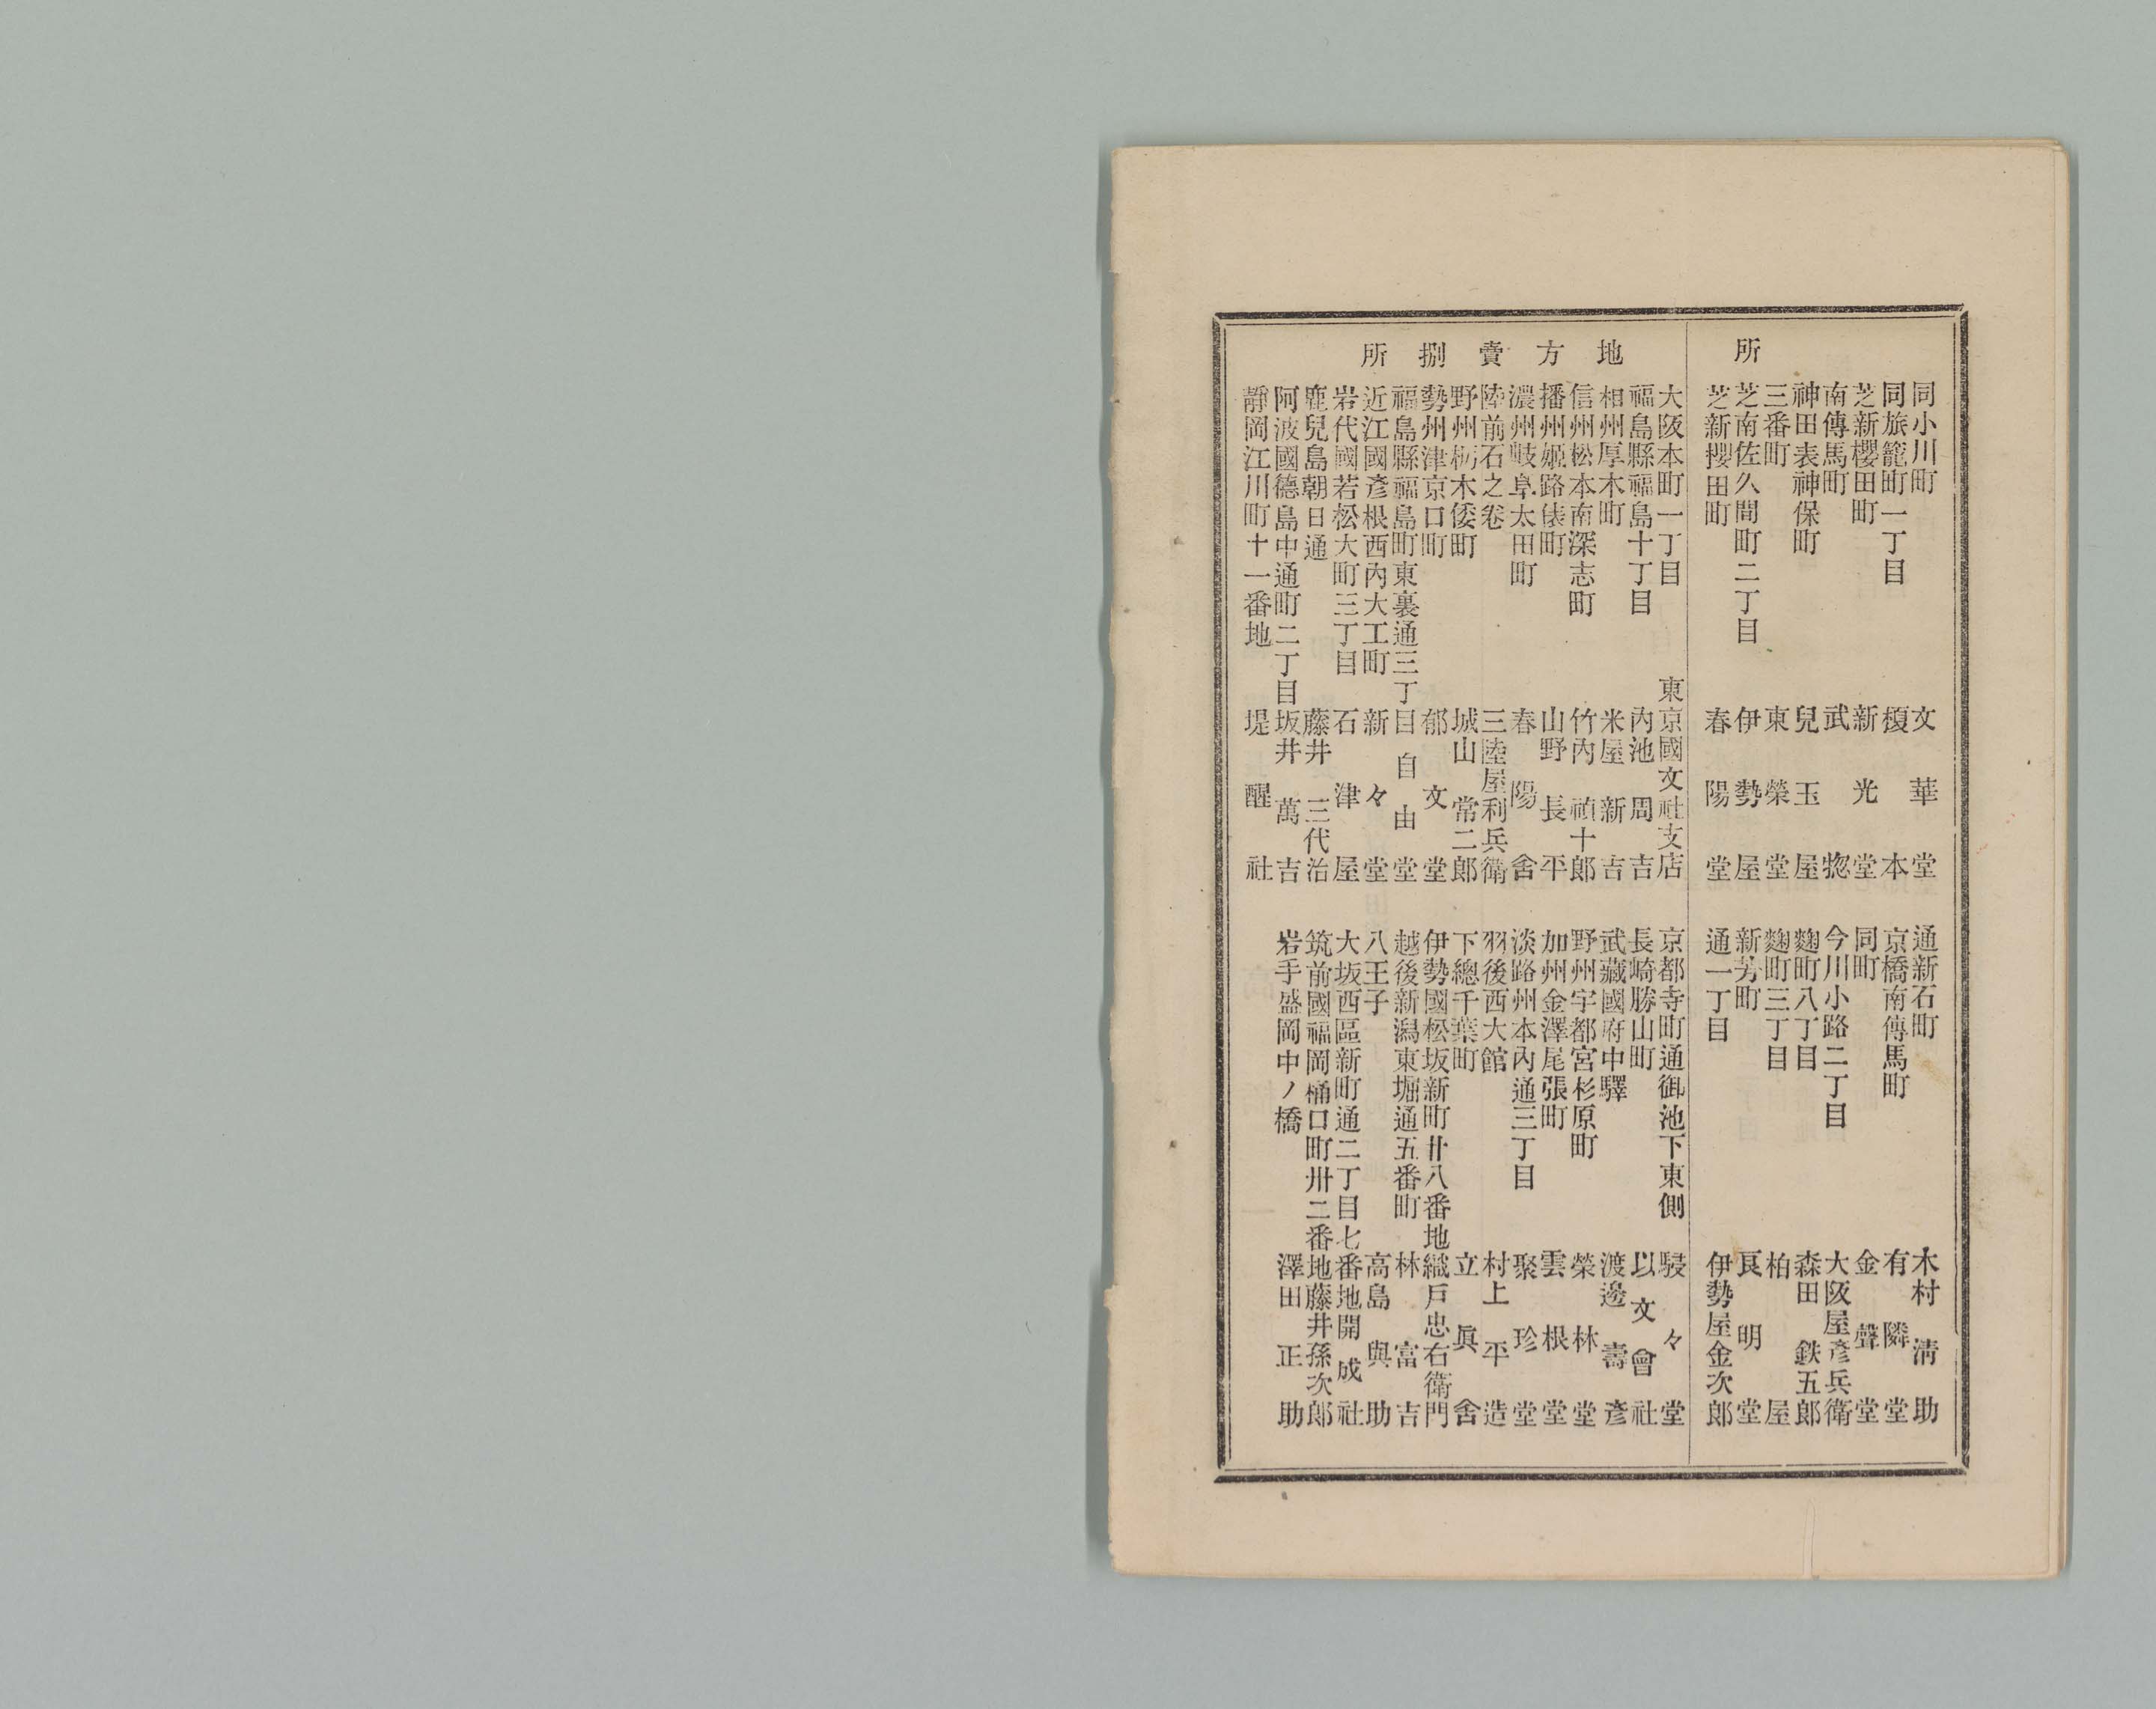 所
同小川町　文華堂
同旅籠町一丁目　榎本
芝新櫻田町　新光堂
南傳馬町　武惣
神田表神保町　兒玉屋
三番町　東榮堂
芝南佐久間町二丁目　伊勢屋
芝新櫻田町　春陽堂
通新石町　木村淸助
京橋南傳馬町　有隣堂
同町　金聲堂
今川小路二丁目　大阪屋彥兵衛
麴町八丁目　森田鉄五郎
麴町三丁目　柏屋
新芳町　良明堂
通一丁目　伊勢屋金次郎
地方賣捌所
大阪本町一丁目　東京國文社支店
福島縣福島十丁目　內池周吉
相州厚木町　米屋新吉
信州松本南深志町　竹內禎十郎
播州姬路俵町　山野長平
濃州岐阜太田町　春陽舍
陸前石之卷　三陸屋利兵衛
野州栃木倭町　城山常二郎
勢州津京口町　郁文堂
福島縣福島町東裏通三丁目　自由堂
近江國彥根西內大工町　新々堂
岩代國若松大町三丁目　石津屋
鹿兒島朝日通　藤井三代治
阿波國德島中通町二丁目　坂井萬吉
靜岡江川町十一番地　堤醒社
京都寺町通御池下東側　駸々堂
長崎勝山町　以文會社
武藏國府中驛　渡邊壽彥
野州宇都宮杉原町　榮林堂
加州金澤尾張町　雲根堂
淡路州本內通三丁目　聚珍堂
羽後西大館　村上平造
下總千葉町　立眞舍
伊勢國松坂新町廿八番地　織戶忠右衛門
越後新潟東堀通五番町　林富吉
八王子　高島與助
大坂西區新町通二丁目七番地　開成社
筑前國福岡桶口町卅二番地　藤井孫次郎
岩手盛岡中ノ橋　澤田正助